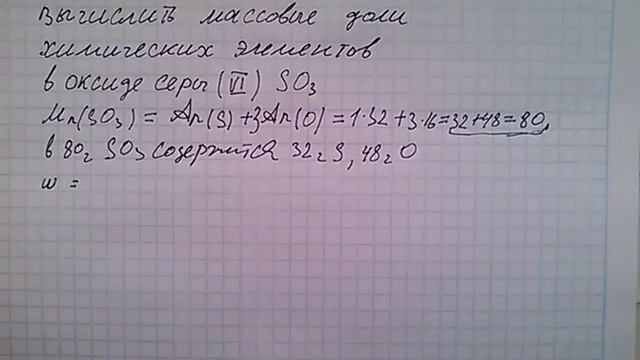 Вычислить массовые доли
химических элементов
в оксиде серы (VI) SO3
Mr(SO3) = Ar(S)+3Ar(O) = 1·32+3·16=32+48=80,
в 80г SO3 содержится 32г S, 48г O
w =